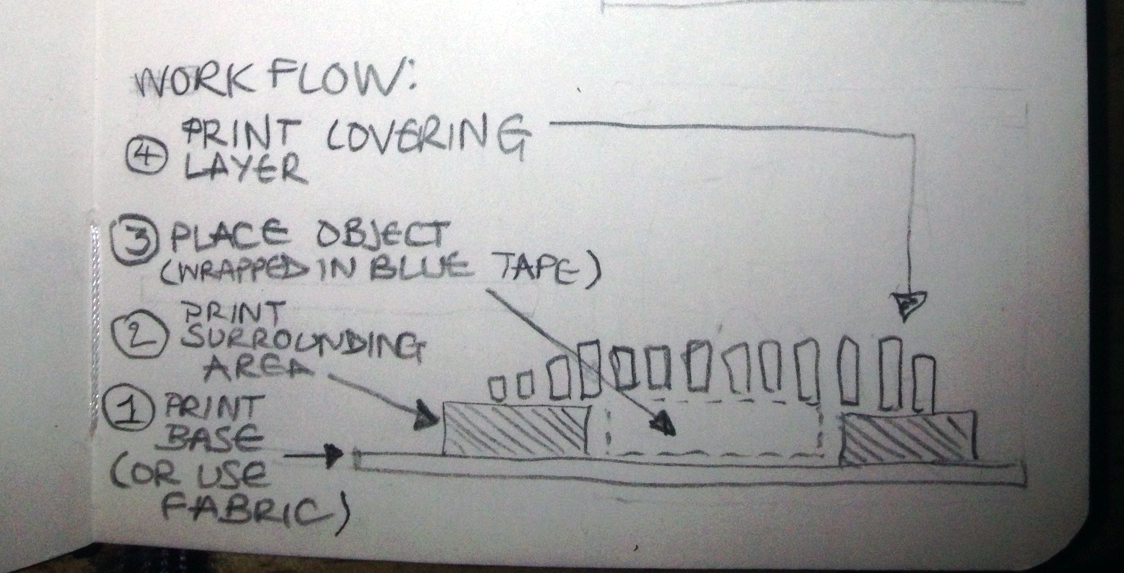 WORKFLOW:
④ PRINT COVERING
LAYER
③ PLACE OBJECT
(WRAPPED IN BLUE TAPE)
② PRINT
SURROUNDING
AREA
① PRINT
BASE
(OR USE
FABRIC)